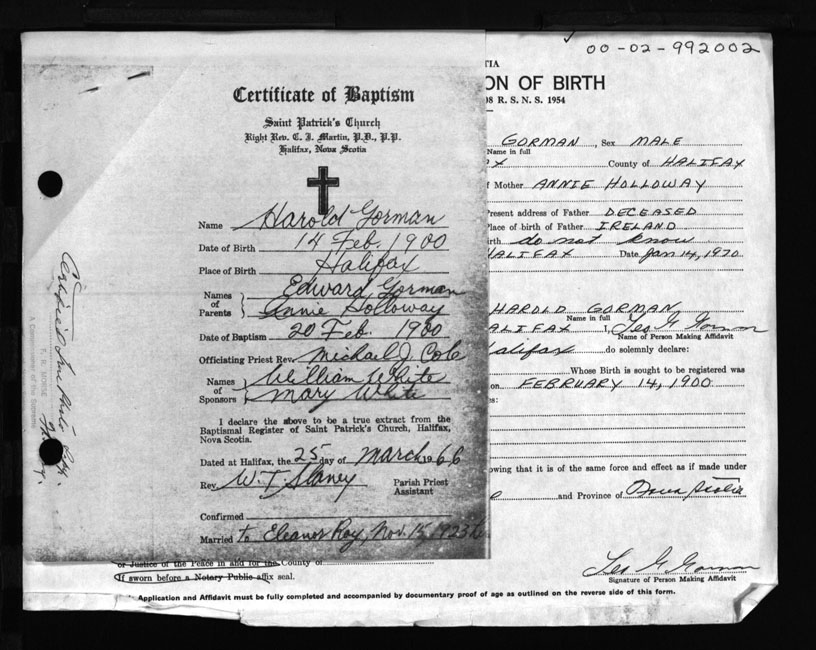 00-02-992002
TIA
ON OF BIRTH
98 R. S. N. S. 1954
GORMAN, Sex MALE
Name in full
X County of HALIFAX
f Mother ANNIE HOLLOWAY
Present address of Father DECEASED
Place of birth of Father IRELAND
irth do not know
HALIFAX Date Jan 14, 1970
HAROLD GORMAN
Name in full
ALIFAX I, Leo G Gorman
Name of Person Making Affidavit
Halifax do solemnly declare:
Whose Birth is sought to be registered was
on FEBRUARY 14, 1900
es:
owing that it is of the same force and effect as if made under
and Province of Nova Scotia
or Justice of the Peace in and for the County of
If sworn before a Notary Public affix seal.
Leo G Gorman
Signature of Person Making Affidavit
Application and Affidavit must be fully completed and accompanied by documentary proof of age as outlined on the reverse side of this form.
Certificate of Baptism
Saint Patrick's Church
Right Rev. C. J. Martin, P.D., P.P.
Halifax, Nova Scotia
Name Harold Gorman
Date of Birth 14 Feb. 1900
Place of Birth Halifax
Names of Parents } Edward Gorman
Annie Holloway
Date of Baptism 20 Feb. 1900
Officiating Priest Rev. Michael J. Cole
Names of Sponsors } William White
Mary White
I declare the above to be a true extract from the
Baptismal Register of Saint Patrick's Church, Halifax,
Nova Scotia.
Dated at Halifax, the 25 day of March 1966
Rev. W. J. Slaney Parish Priest
Assistant
Confirmed
Married to Eleanor Roy, Nov. 15, 1923
Certified True Photo Copy.
A Commissioner of the Supreme